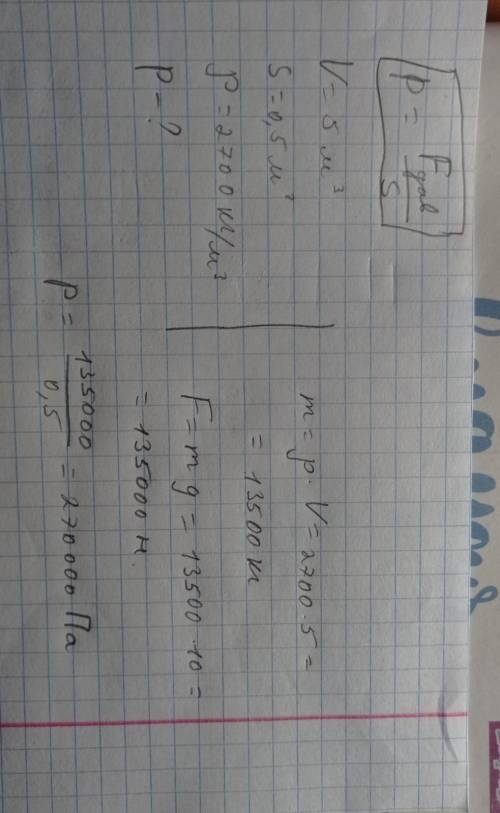 p = Fдав/S
V = 5 м³
S = 0,5 м²
ρ = 2700 кг/м³
p = ?
m = ρ · V = 2700 · 5 =
= 13500 кг
F = mg = 13500 · 10 =
= 135000 Н.
p = 135000/0,5 = 270000 Па